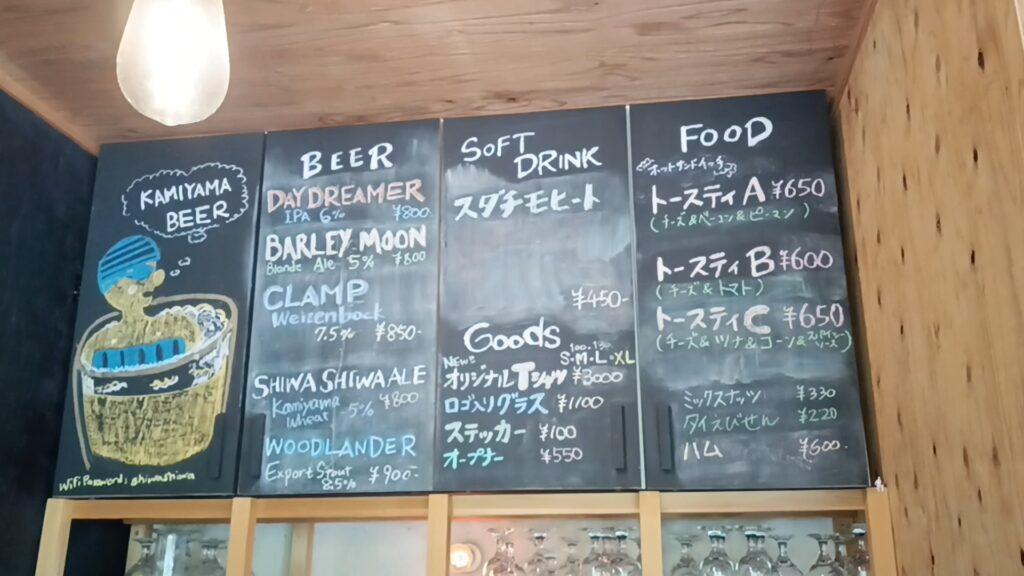 KAMIYAMA
BEER
WiFi Password: shiwashiwa
BEER
DAYDREAMER
IPA 6% ¥800-
BARLEY MOON
Blonde Ale 5% ¥800
CLAMP
Weizenbock
7.5% ¥850-
SHIWA SHIWA ALE
Kamiyama Wheat 5% ¥800
WOODLANDER
Export Stout
8.5% ¥900-
SOFT
DRINK
スダチモヒート
¥450-
Goods
NEW!! 100.130
S・M・L・XL
オリジナルTシャツ ¥3000
ロゴ入りグラス ¥1100
ステッカー ¥100
オープナー ¥550
FOOD
ホットサンドイッチ
トースティA ¥650
(チーズ&ベーコン&ピーマン)
トースティB ¥600
(チーズ&トマト)
トースティC ¥650
(チーズ&ツナ&コーン&)
ミックスナッツ ¥330
タイえびせん ¥220
ハム ¥600-